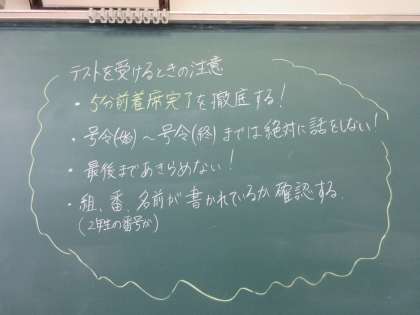 テストを受けるときの注意
・5分前着席完了を徹底する!
・号令(始)〜号令(終)までは絶対に話をしない!
・最後まであきらめない!
・組、番、名前が書かれているか確認する
(2年生の番号か)